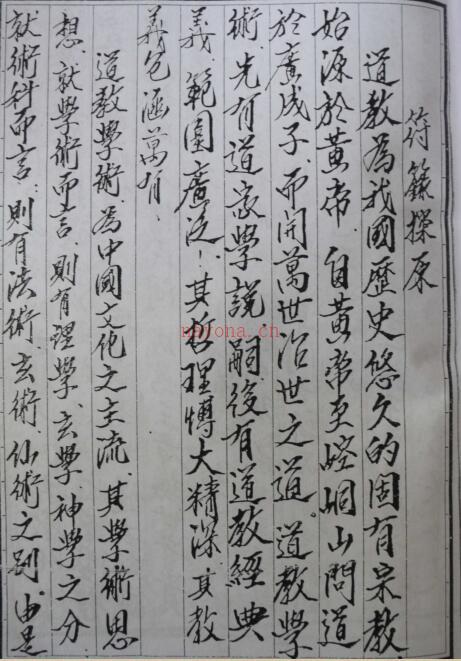 符籙探原
道教為我國歷史悠久的固有宗教
始源於黃帝、自黃帝至崆峒山問道
於廣成子、而開萬世治世之道。道教學
術、先有道家學說、嗣後有道教經典
義、範圍廣泛!其哲理博大精深、其教
義包涵萬有、
道教學術、為中國文化之主流、其學術思
想、就學術而言、則有理學、玄學、神學之分
就術科而言、則有法術、玄術、仙術之別、由是
nayona.cn